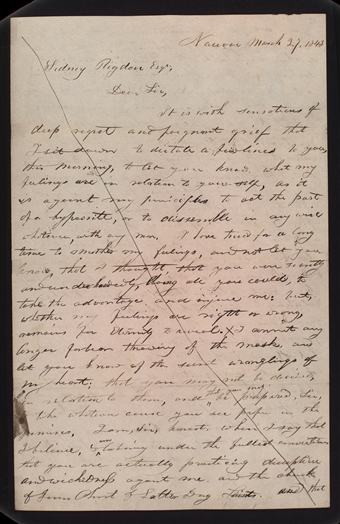 Nauvoo March 27, 1843
Sidney Rigdon Esqr,
Dear Sir,
It is with sensations of
deep regret and poignant grief that
I sit down to dictate a few lines to you,
this morning, to let you know what my
feelings are in relation to yourself, as it
is against my principles to act the part
of a hypocrite, or to dissemble in any wise
whatever, with any man. I have tried for a long
time to smother my feelings, and not let you
know, that I thought, that you were secretly
and underhandedly, doing all you could, to
take the advantage and injure me: but,
whether my feelings are right or wrong,
remains for Eternity to reveal. I cannot any
longer forbear throwing off the mask and
let you know of the secret wranglings of
my heart; that you may not be deceived,
in relation to them, and be prepared, Sir,
the whatever cause you see proper in the
premises. I am, Sir, honest, when I say that
I believe, laboring under the fullest convictions
that you are actually practicing deception
and wickedness against me and the church
of Jesus Christ of Latter Day Saints. and that